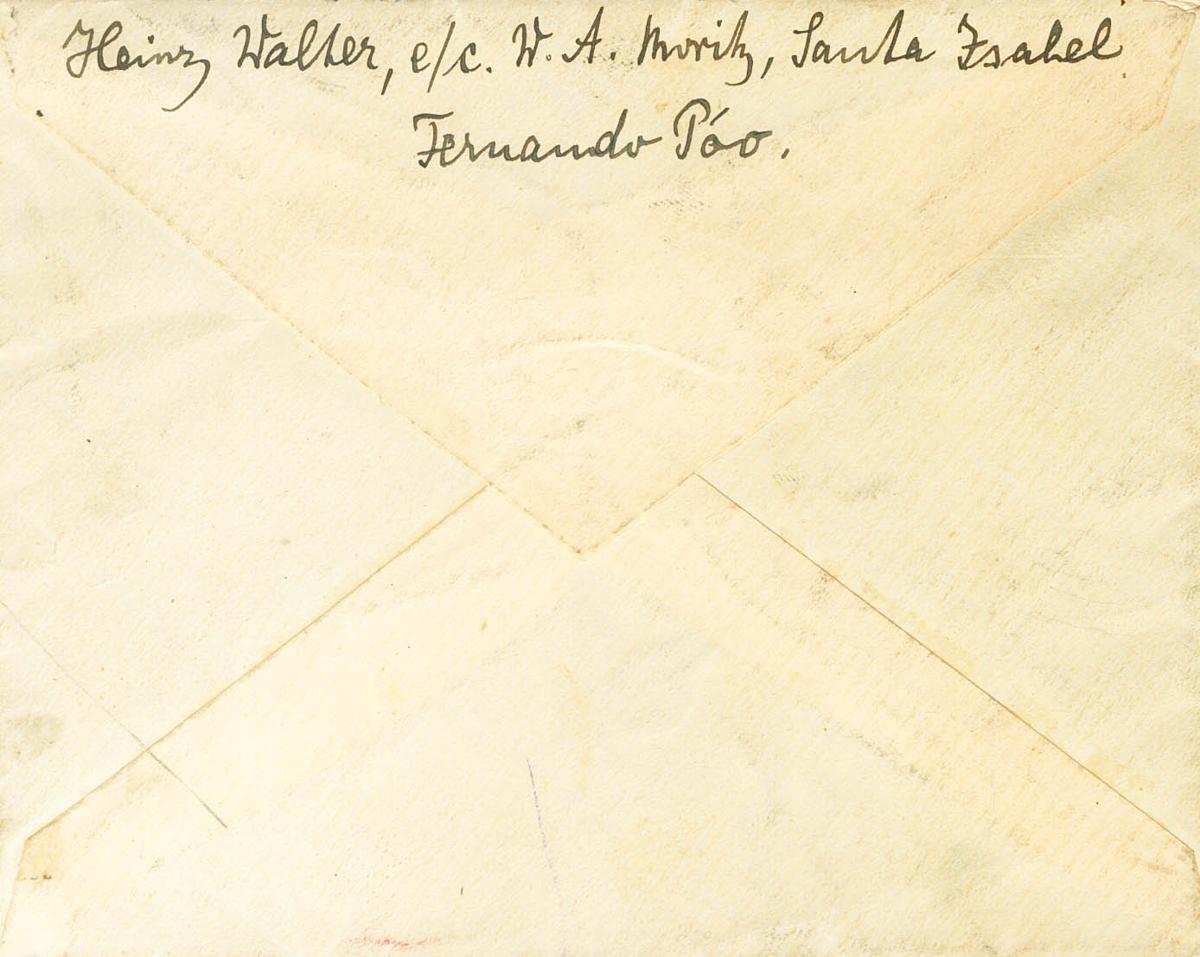 Heinz Walter, e/c. W. A. Moritz, Santa Isabel
Fernando Póo.